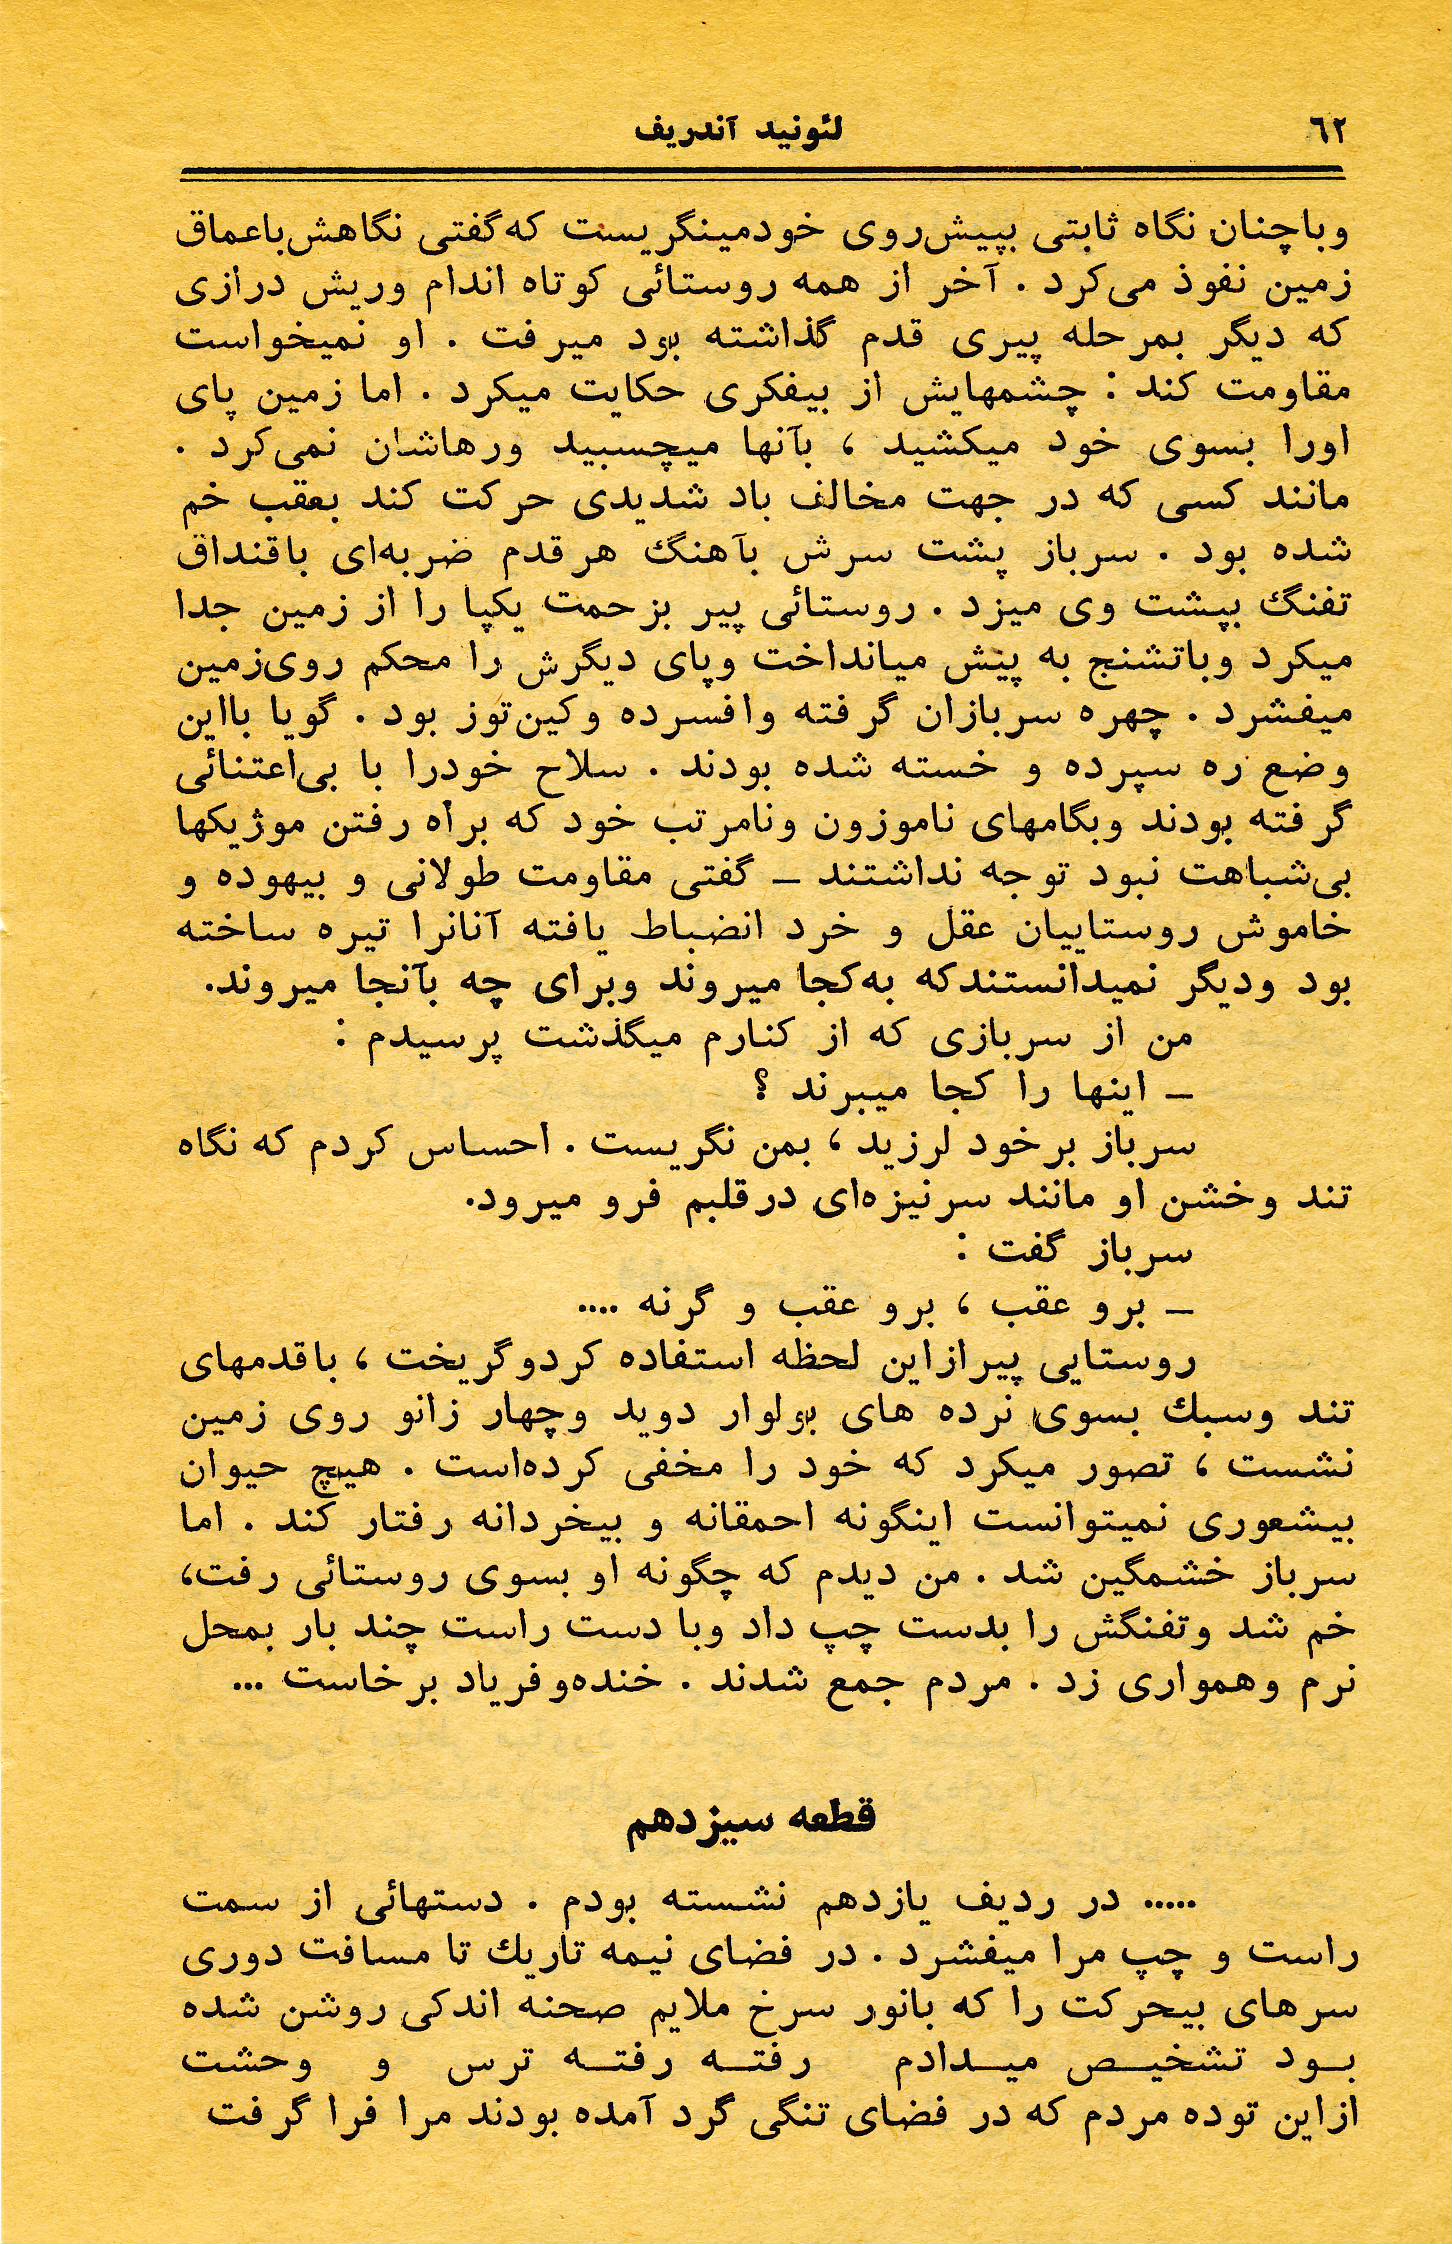 ٦٢
لئونید آندریف
وباچنان نگاه ثابتی بپیش‌روی خودمینگریست که‌گفتی نگاهش‌باعماق
زمین نفوذ می‌کرد . آخر از همه روستائی کوتاه اندام وریش درازی
که دیگر بمرحله پیری قدم گذاشته بود میرفت . او نمیخواست
مقاومت کند : چشمهایش از بیفکری حکایت میکرد . اما زمین پای
اورا بسوی خود میکشید ، بآنها میچسبید ورهاشان نمی‌کرد .
مانند کسی که در جهت مخالف باد شدیدی حرکت کند بعقب خم
شده بود . سرباز پشت سرش بآهنگ هرقدم ضربه‌ای باقنداق
تفنگ بپشت وی میزد . روستائی پیر بزحمت یکپا را از زمین جدا
میکرد وباتشنج به پیش میانداخت وپای دیگرش را محکم روی‌زمین
میفشرد . چهره سربازان گرفته وافسرده وکین‌توز بود . گویا بااین
وضع ره سپرده و خسته شده بودند . سلاح خودرا با بی‌اعتنائی
گرفته بودند وبگامهای ناموزون ونامرتب خود که براه رفتن موژیکها
بی‌شباهت نبود توجه نداشتند ـ گفتی مقاومت طولانی و بیهوده و
خاموش روستاییان عقل و خرد انضباط یافته آنانرا تیره ساخته
بود ودیگر نمیدانستندکه به‌کجا میروند وبرای چه بآنجا میروند.
من از سربازی که از کنارم میگذشت پرسیدم :
ـ اینها را کجا میبرند ؟
سرباز برخود لرزید ، بمن نگریست . احساس کردم که نگاه
تند وخشن او مانند سرنیزه‌ای درقلبم فرو میرود.
سرباز گفت :
ـ برو عقب ، برو عقب و گرنه ....
روستایی پیرازاین لحظه استفاده کردوگریخت ، باقدمهای
تند وسبك بسوی نرده های بولوار دوید وچهار زانو روی زمین
نشست ، تصور میکرد که خود را مخفی کرده‌است . هیچ حیوان
بیشعوری نمیتوانست اینگونه احمقانه و بیخردانه رفتار کند . اما
سرباز خشمگین شد . من دیدم که چگونه او بسوی روستائی رفت،
خم شد وتفنگش را بدست چپ داد وبا دست راست چند بار بمحل
نرم وهمواری زد . مردم جمع شدند . خنده‌وفریاد برخاست ...
قطعه سیزدهم
..... در ردیف یازدهم نشسته بودم . دستهائی از سمت
راست و چپ مرا میفشرد . در فضای نیمه تاریك تا مسافت دوری
سرهای بیحرکت را که بانور سرخ ملایم صحنه اندکی روشن شده
بـود تشخیـص میـدادم رفتـه رفتـه ترس و وحشت
ازاین توده مردم که در فضای تنگی گرد آمده بودند مرا فرا گرفت